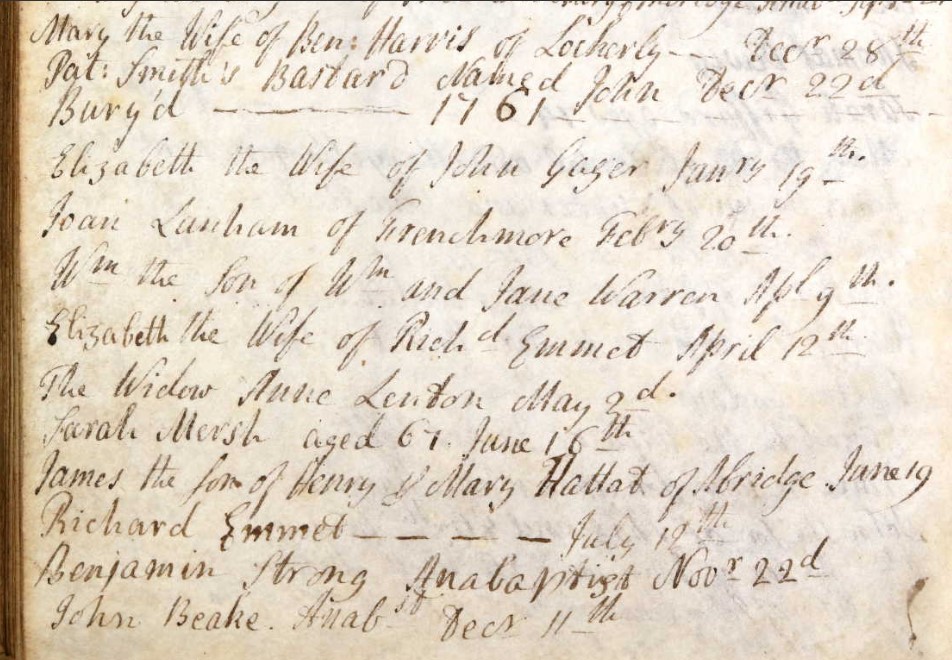 Mary the Wife of Ben: Harris of Lockerly — Decr 28th
Pat: Smith's Bastard Named John Decr 22d
Bury'd — 1761
Elizabeth the Wife of John Gager Janry 19th.
Joan Lanham of Frenchmore Febry 20th.
Wm the Son of Wm and Jane Warren Apl 9th.
Elizabeth the Wife of Richd Emmet April 12th
The Widow Anne Lenton May 2d.
Sarah Mersh aged 67. June 16th
James the son of Henry & Mary Hattat of Abridge June 19
Richard Emmet — — — — July 12th
Benjamin Strong Anabaptist Novr 22d
John Beake. Anabst Decr 11th